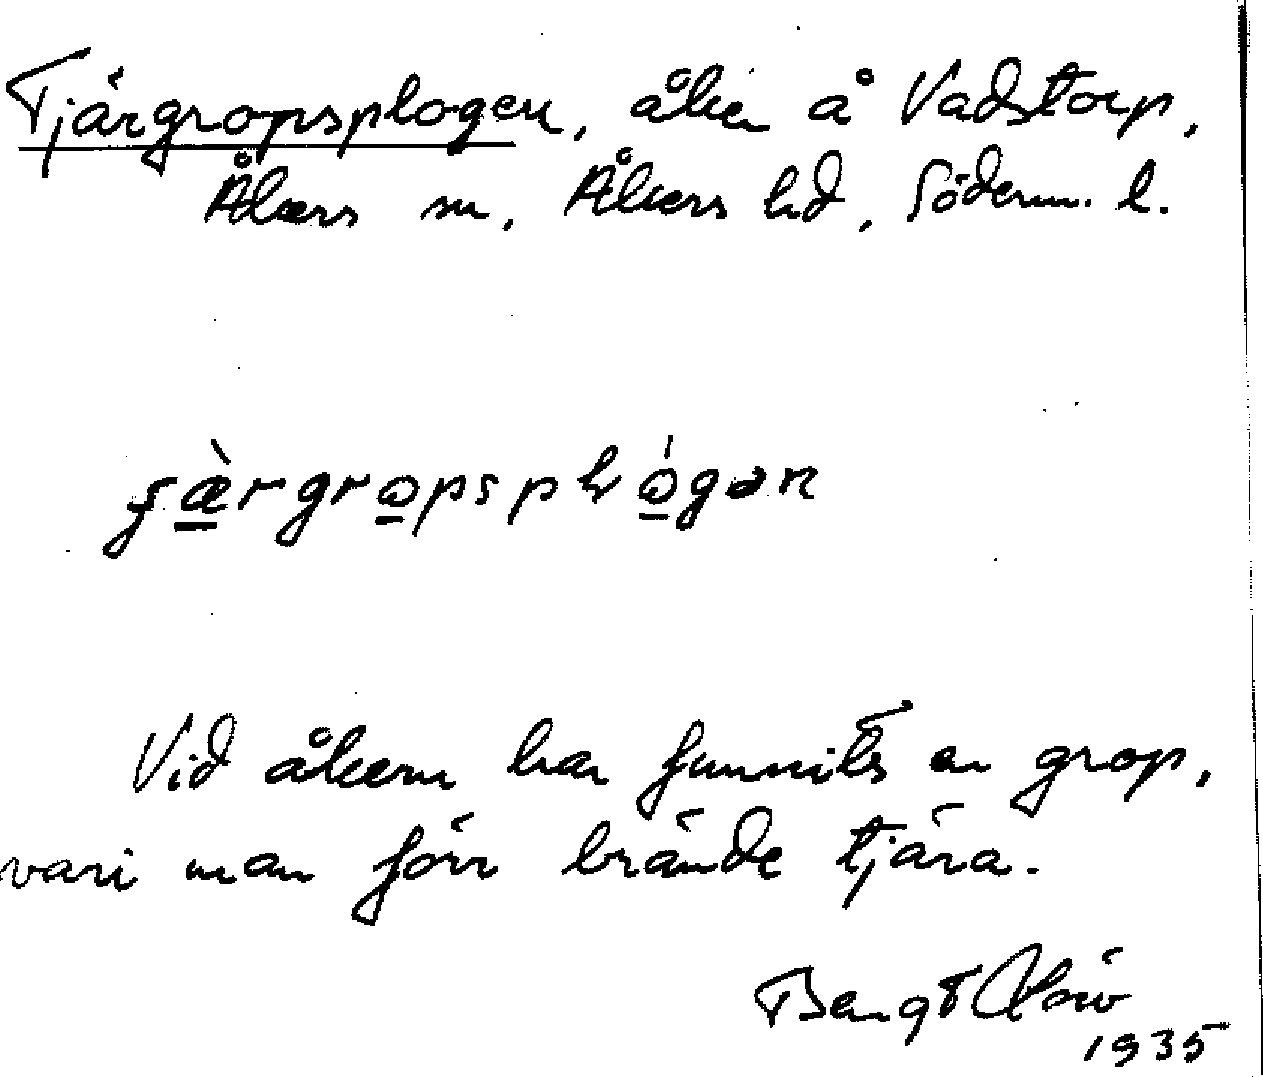 Tjärgropsplogen, åker å Vadstorp,
Åkers sn, Åkers hd, Söderm. l.
Vid åkern har funnits en grop,
vari man förr brände tjära.
Bengt
1935